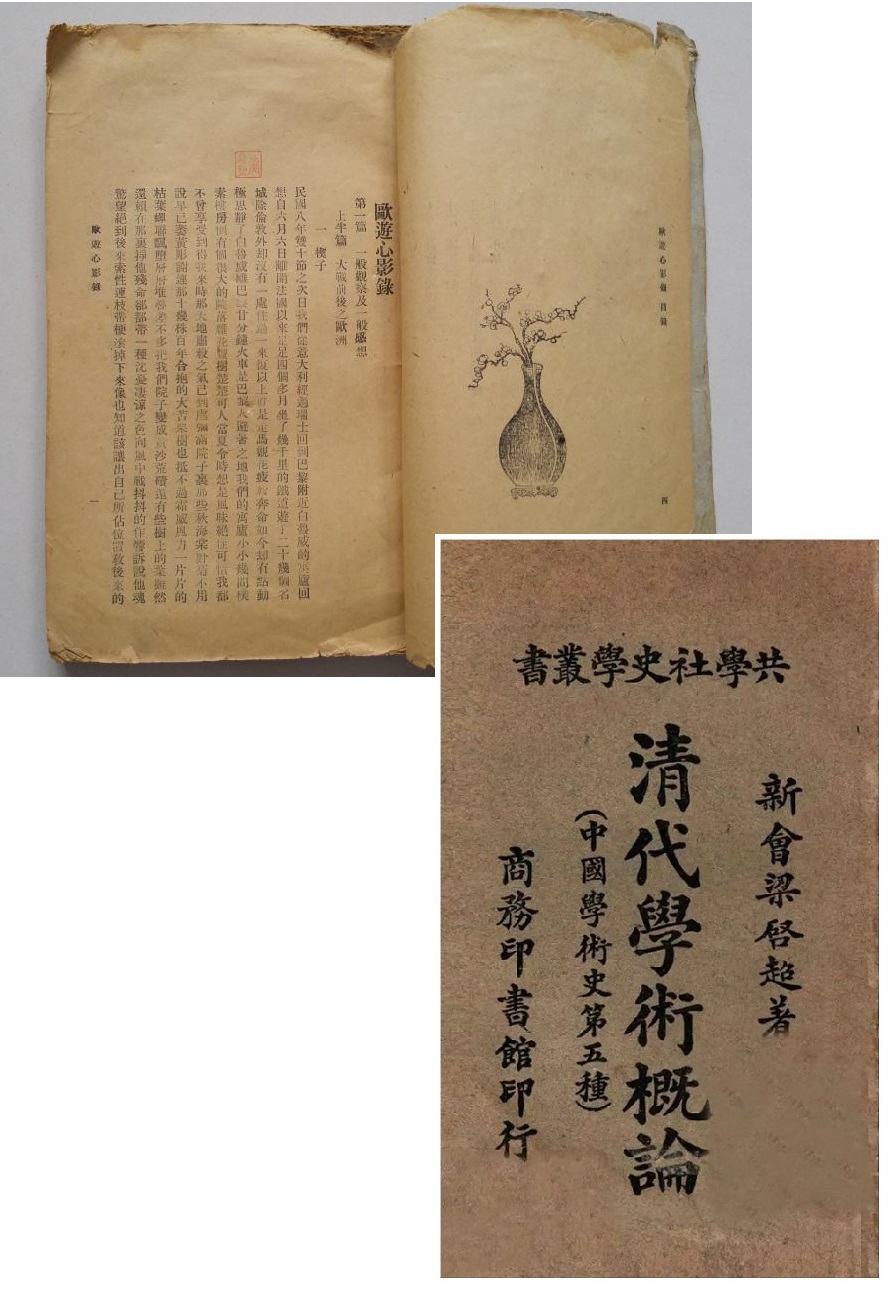 歐遊心影錄 目錄
四
歐遊心影錄
第一篇 一般觀察及一般感想
上半篇 大戰前後之歐洲
一 楔子
民國八年雙十節之次日我們從意大利經過瑞士回到巴黎附近白魯威的寓廬回
想自六月六日離開法國以來足足四個多月坐了幾千里的鐵道遊了二十幾個名
城除倫敦外却沒有一處住過一來復以上真是走馬觀花疲於奔命如今却有點動
極思靜了白魯威離巴黎廿分鐘火車是巴黎人避暑之地我們的寓廬小小幾間樸
素樓房倒有個很大的院落雜花豐樹楚楚可人當夏令時想是風味絕佳可惜我都
不曾享受到得我來時那天地肅殺之氣已到處彌滿院子裏那些秋海棠野菊不用
說早已萎黃彫謝連那十幾株百年合抱的大苦栗樹也抵不過霜威風力一片片的
枯葉蟬聯飄墮層層堆疊差不多把我們院子變成黃沙荒磧還有些樹上的葉雖然
還賴在那裏掙他殘命卻都帶一種沈憂淒涼之色向風中戰抖抖的作響訴說他魂
驚望絕到後來索性連枝帶梗滾掉下來像也知道該讓出自己所佔位置教後來的
歐遊心影錄
一
共學社史學叢書
新會梁啓超著
清代學術概論
(中國學術史第五種)
商務印書館印行